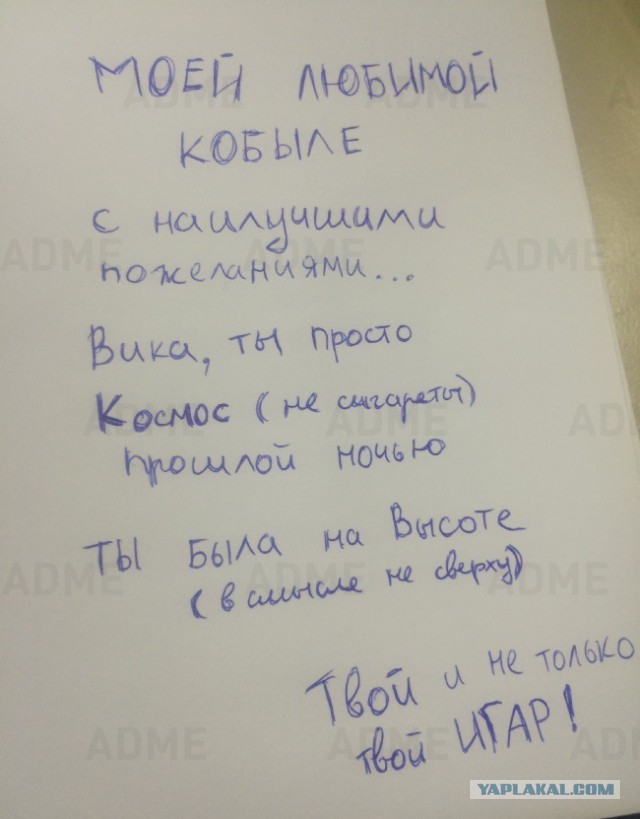 МОЕЙ ЛЮБИМОЙ
КОБЫЛЕ
с наилучшими
пожеланиями...
Вика, ты просто
Космос (не сигареты)
прошлой ночью
ТЫ БЫЛА на Высоте
(в смысле не сверху)
Твой и не только
твой ИГАР!
ADME
ADME
ADME
ADME
ADME
ADME
AD
ADME
ADME
ADME
ADME
ADME
ADME
YAPLAKAL.COM